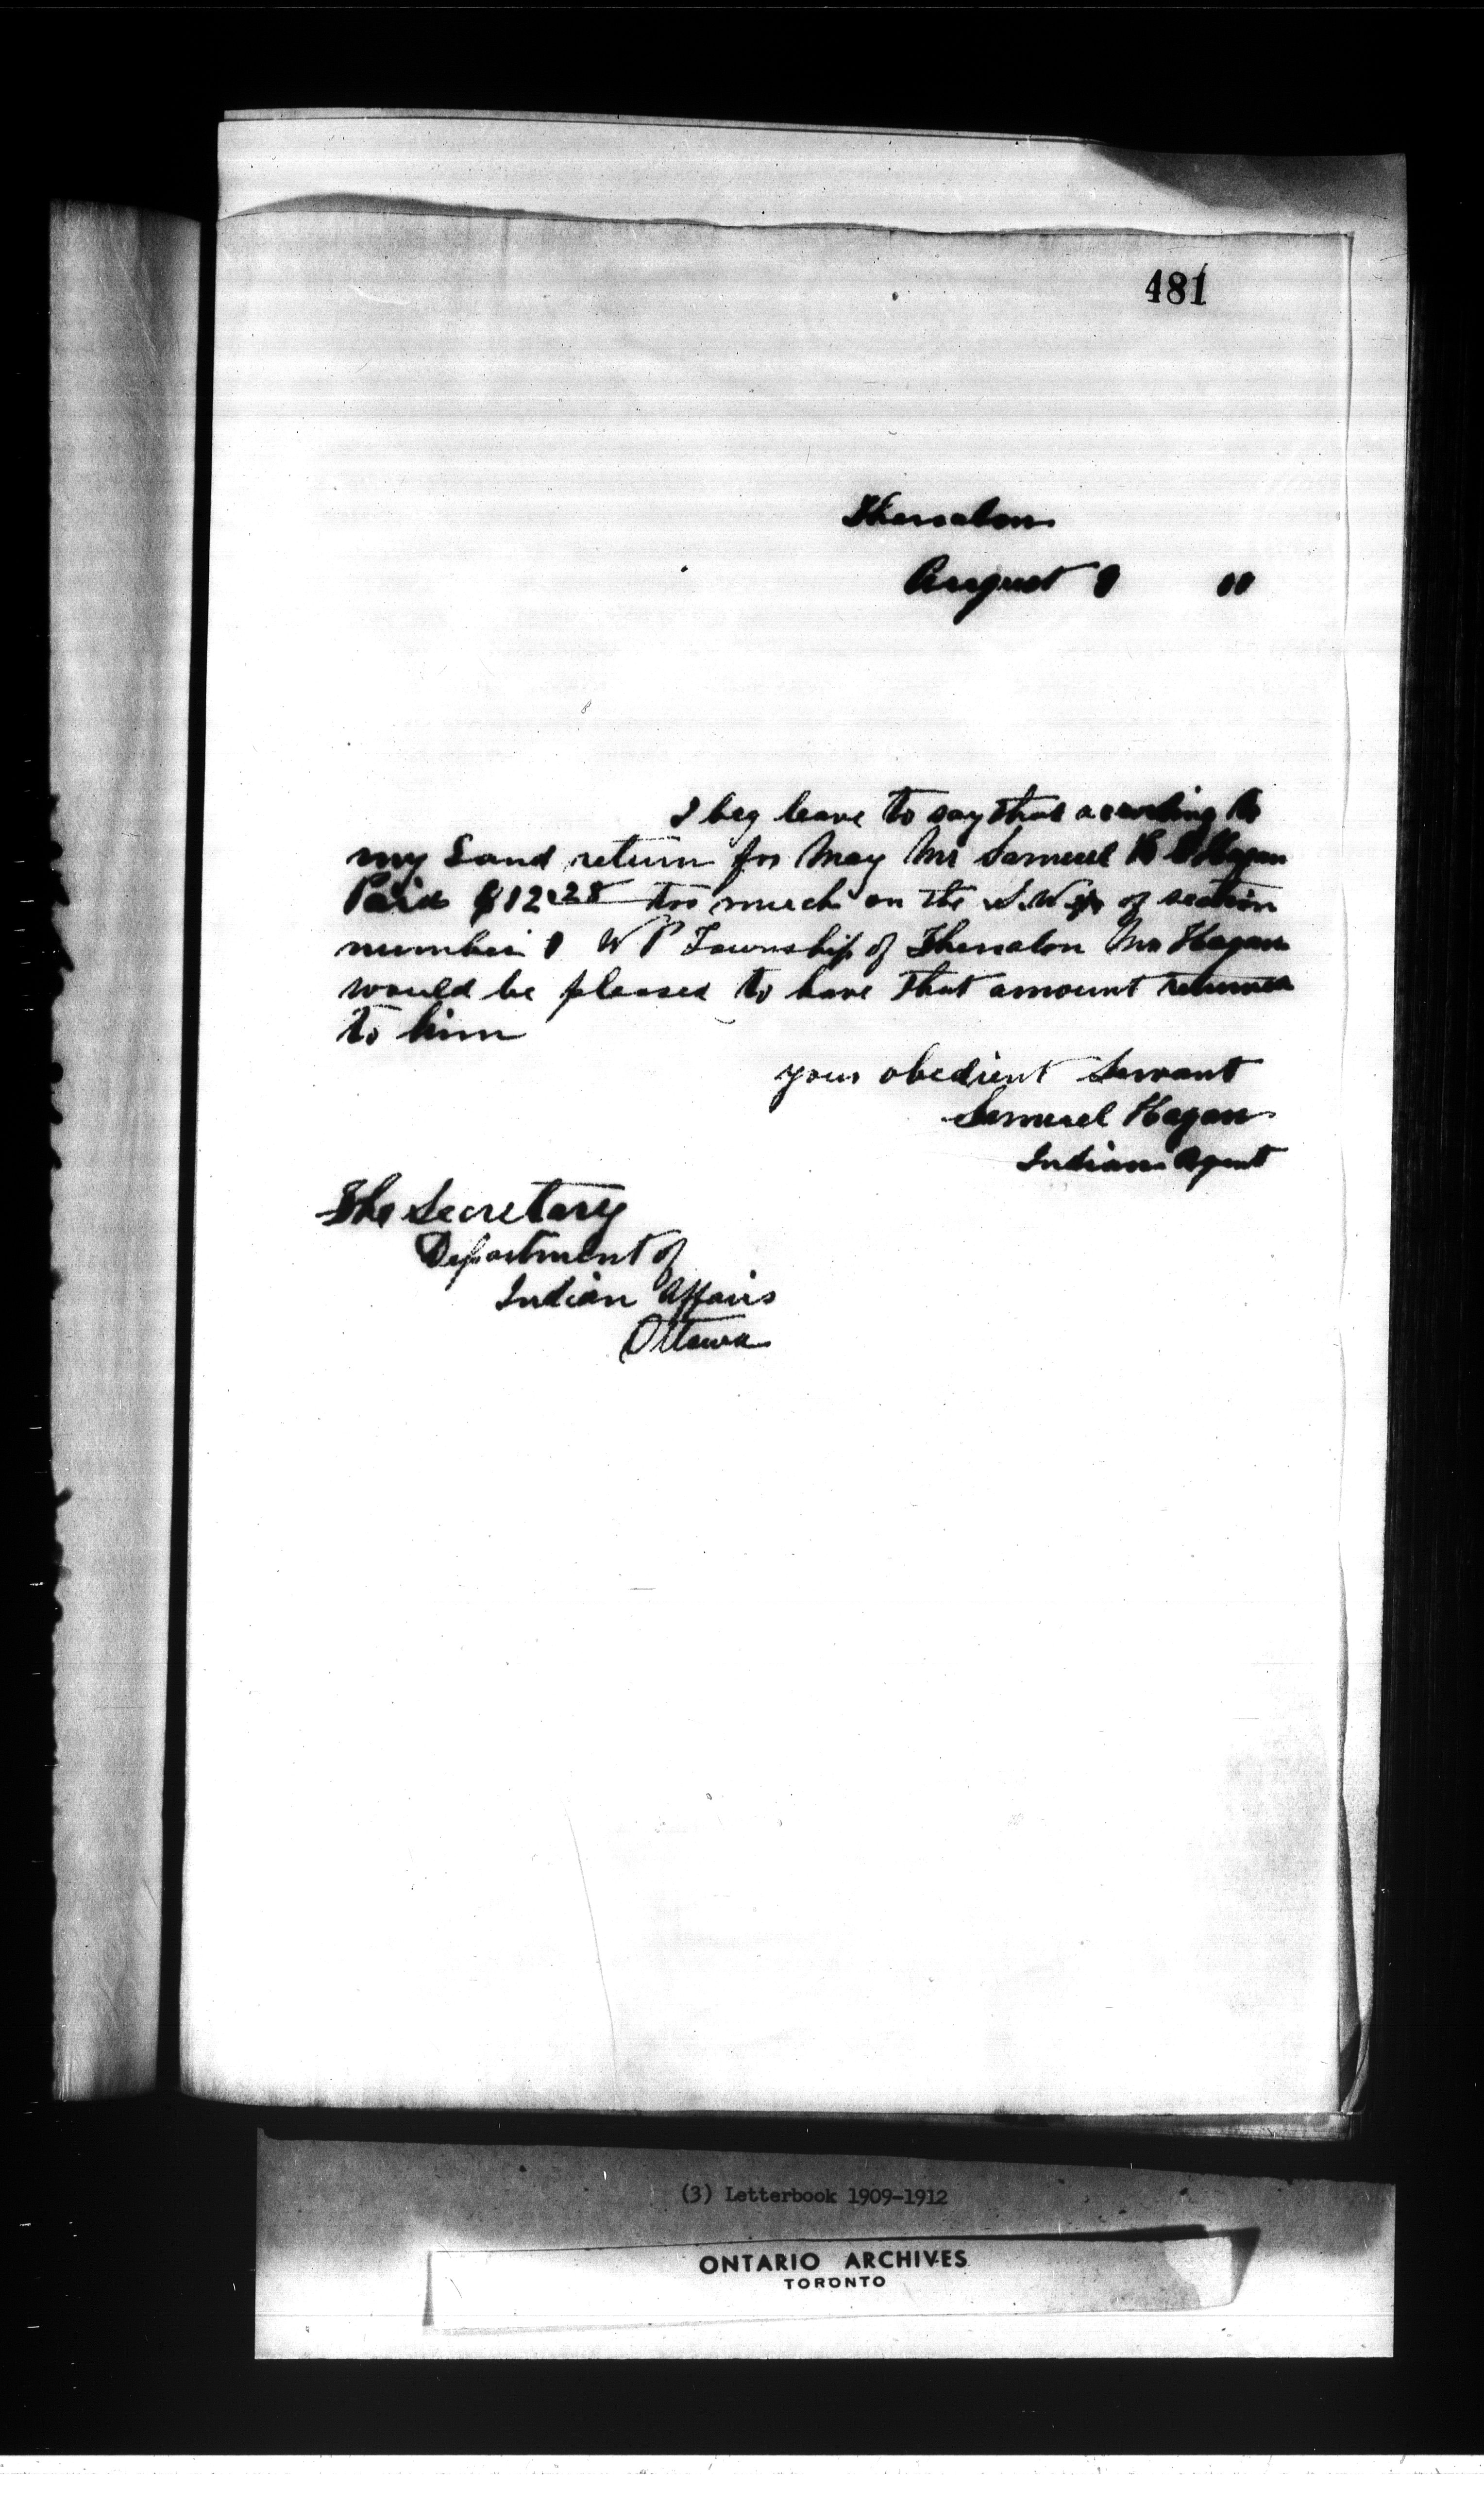 481
Thessalon
August 11
I beg leave to say that according to
my Land return for May Mr Samuel Hagan
Paid $12.28 too much on the S.W. of section
number W P Township of Thessalon Mr Hagan
would be pleased to have that amount returned
to him
your obedient Servant
Samuel Hagan
Indian Agent
The Secretary
Department of
Indian Affairs
Ottawa
(3) Letterbook 1909-1912
ONTARIO ARCHIVES
TORONTO